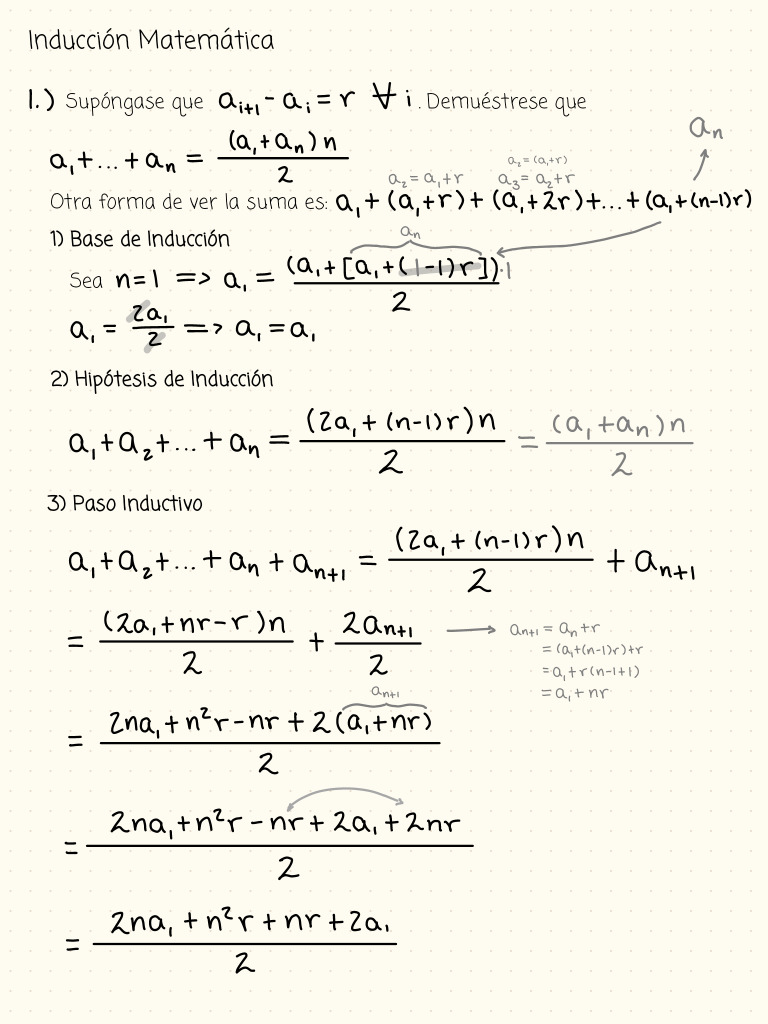 Inducción Matemática
1.) Supóngase que aᵢ₊₁ - aᵢ = r ∀ i. Demuéstrese que
a₁+...+aₙ = (a₁+aₙ)n / 2
aₙ
a₂=(a₁+r)
a₂=a₁+r a₃=a₂+r
Otra forma de ver la suma es: a₁+(a₁+r)+(a₁+2r)+...+(a₁+(n-1)r)
1) Base de Inducción
aₙ
Sea n=1 => a₁ = (a₁+[a₁+(1-1)r])·1 / 2
a₁ = 2a₁/2 => a₁=a₁
2) Hipótesis de Inducción
a₁+a₂+...+aₙ = (2a₁+(n-1)r)n / 2 = (a₁+aₙ)n / 2
3) Paso Inductivo
a₁+a₂+...+aₙ+aₙ₊₁ = (2a₁+(n-1)r)n / 2 + aₙ₊₁
= (2a₁+nr-r)n / 2 + 2aₙ₊₁ / 2
aₙ₊₁ = aₙ+r
= (a₁+(n-1)r)+r
= a₁+r(n-1+1)
= a₁+nr
aₙ₊₁
= 2na₁+n²r-nr+2(a₁+nr) / 2
= 2na₁+n²r-nr+2a₁+2nr / 2
= 2na₁+n²r+nr+2a₁ / 2